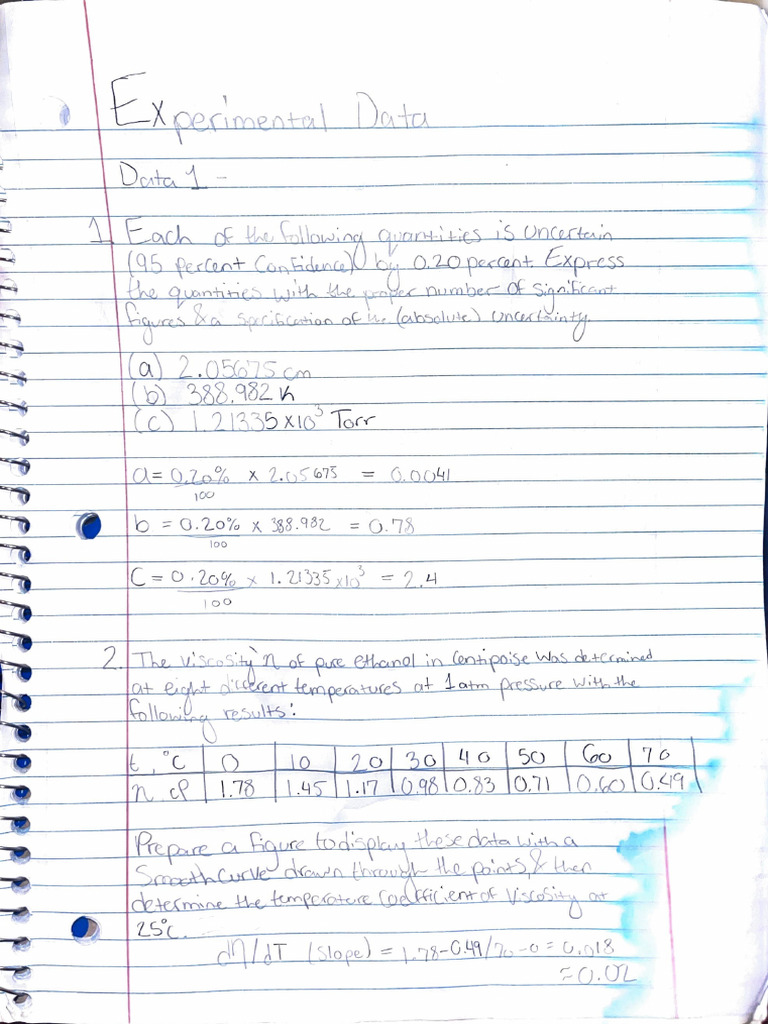 Experimental Data
Data 1 -
1. Each of the following quantities is uncertain
(95 percent Confidence) by 0.20 percent. Express
the quantities with the proper number of significant
figures & a specification of the (absolute) uncertainty.
(a) 2.05675 cm
(b) 388.982 K
(c) 1.21335 x 10³ Torr
a = 0.20% x 2.05675 = 0.0041
100
b = 0.20% x 388.982 = 0.78
100
C = 0.20% x 1.21335 x 10³ = 2.4
100
2. The viscosity n of pure ethanol in Centipoise was determined
at eight different temperatures at 1 atm pressure with the
following results:
t, °C 0 10 20 30 40 50 60 70
n cP 1.78 1.45 1.17 0.98 0.83 0.71 0.60 0.49
Prepare a figure to display these data with a
Smooth curve drawn through the points, & then
determine the temperature coefficient of viscosity at
25°C.
dη/dT (slope) = 1.78-0.49/70-0 = 0.018
= 0.02